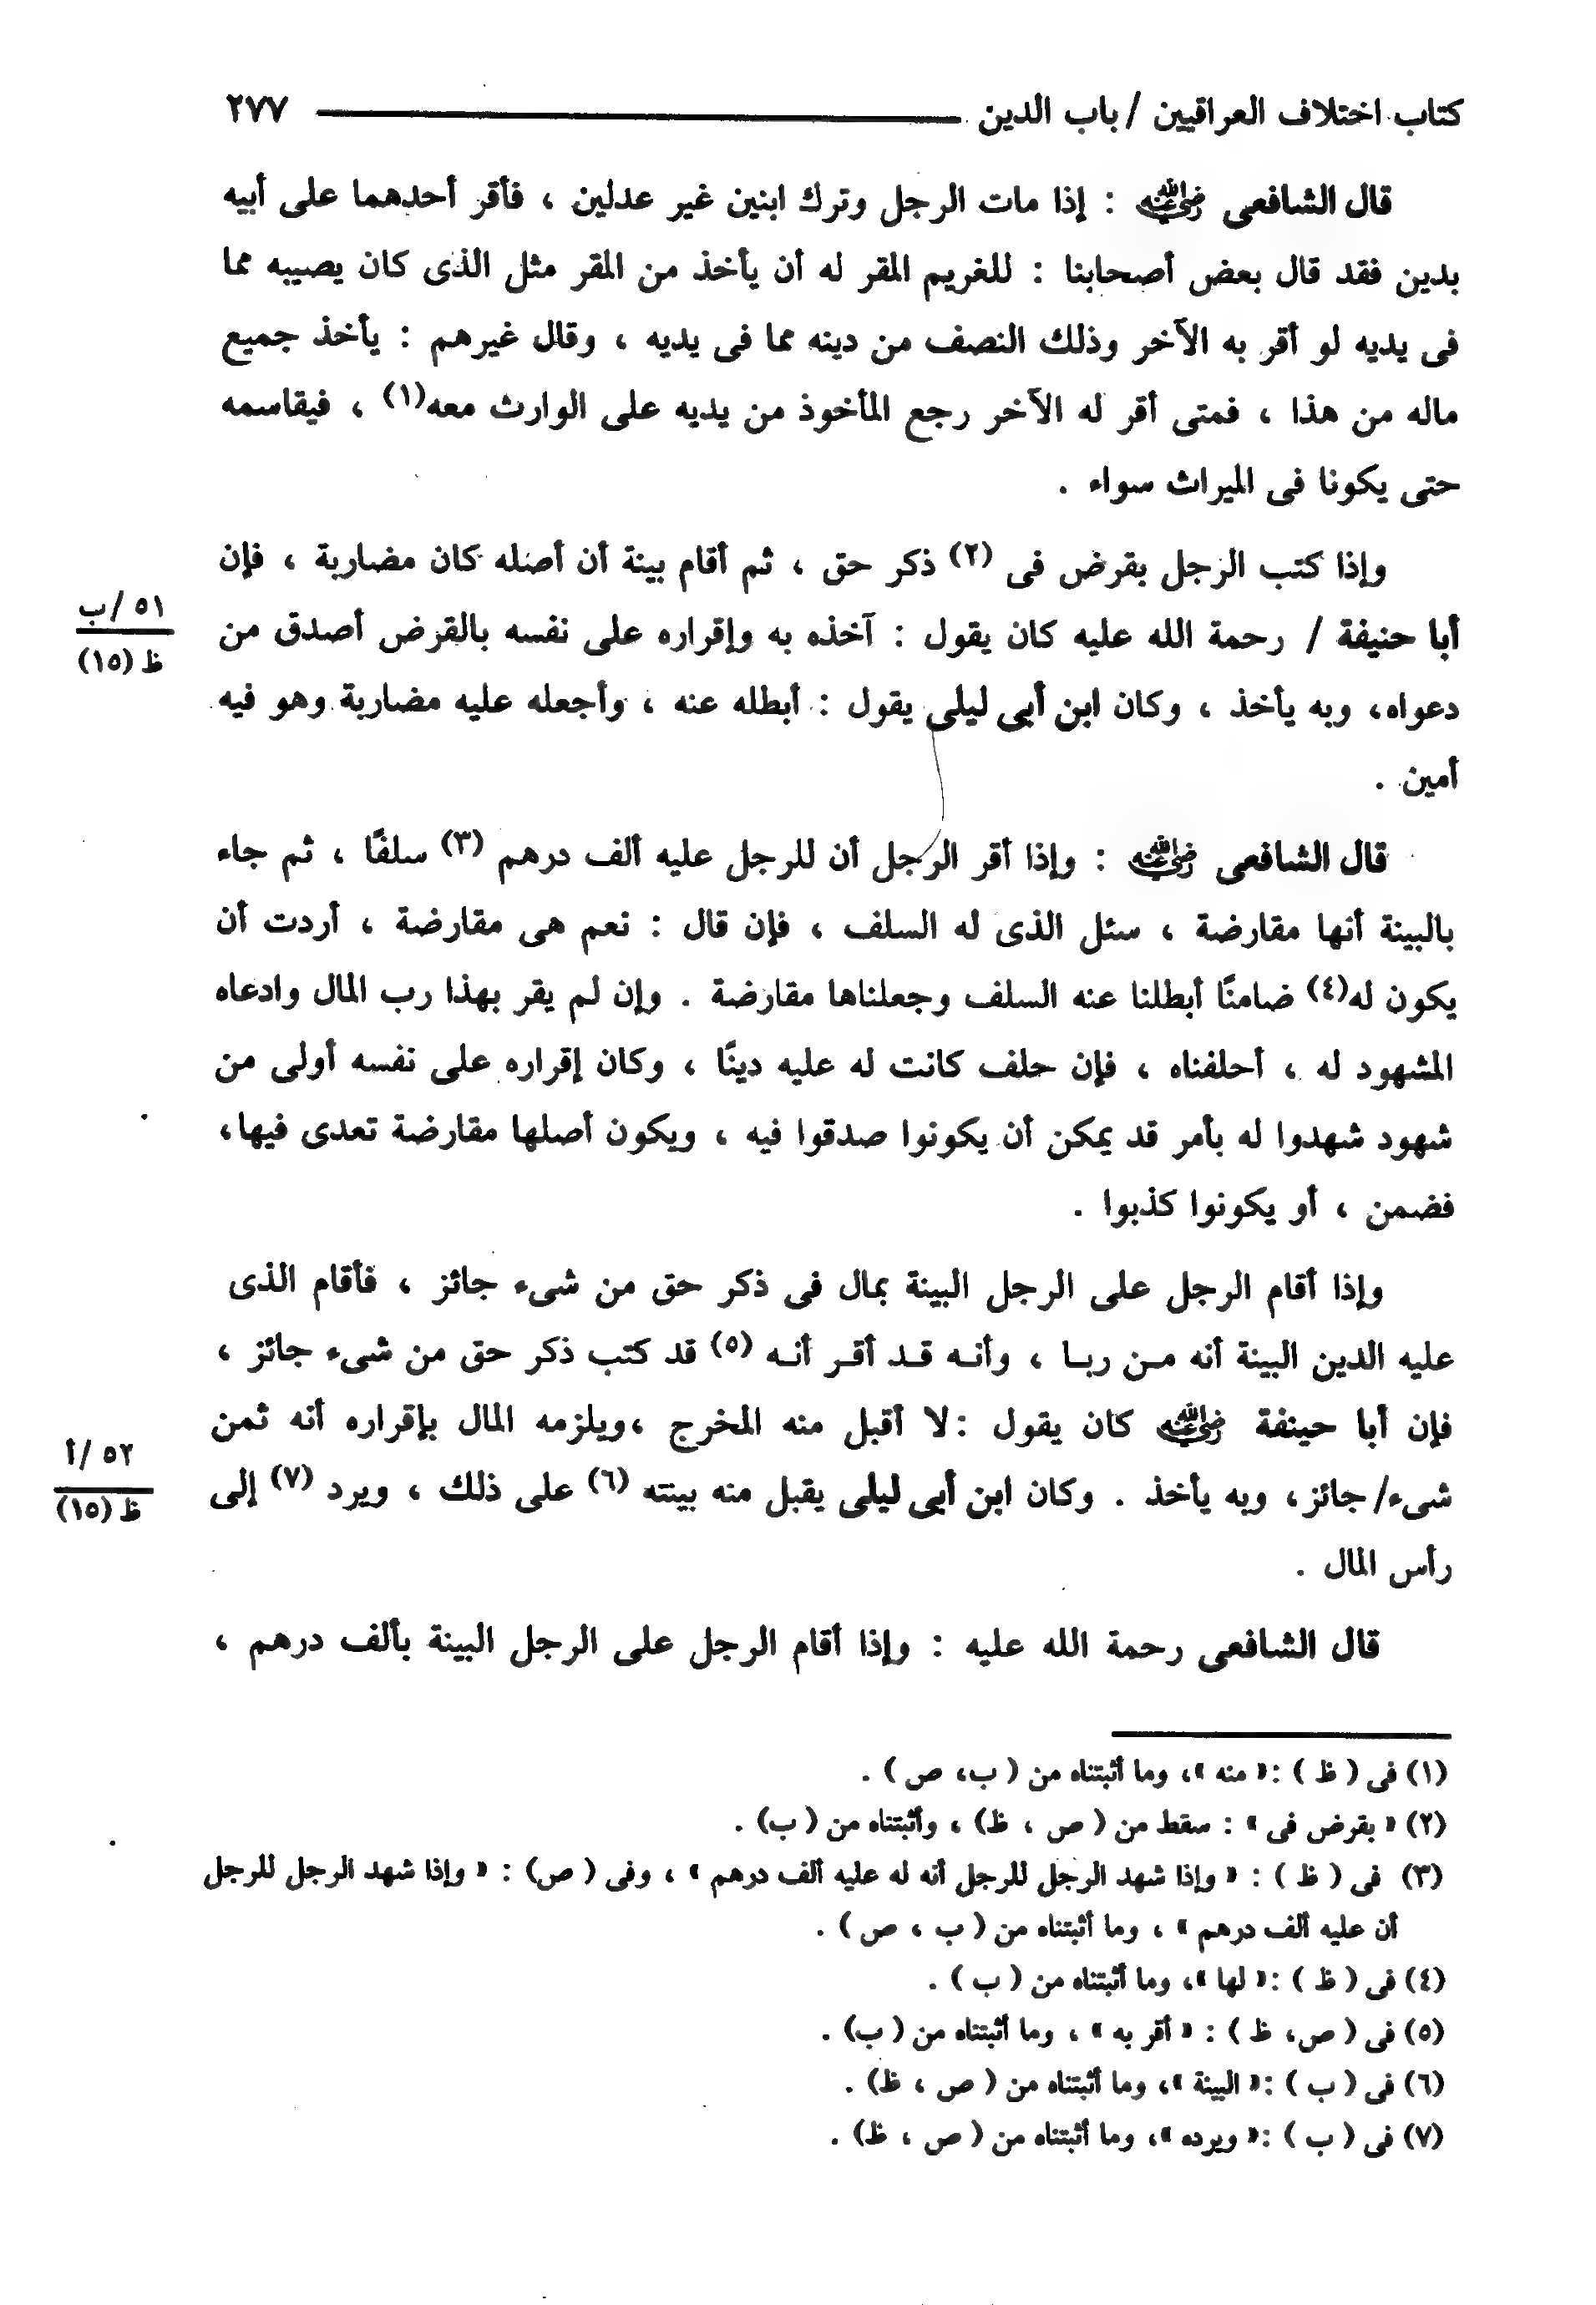 كتاب اختلاف العراقيين / باب الدين ٢٧٧
قال الشافعى رضي الله عنه : إذا مات الرجل وترك ابنين غير عدلين ، فأقر أحدهما على أبيه
بدين فقد قال بعض أصحابنا : للغريم المقر له أن يأخذ من المقر مثل الذى كان يصيبه مما
فى يديه لو أقر به الآخر وذلك النصف من دينه مما فى يديه ، وقال غيرهم : يأخذ جميع
ماله من هذا ، فمتى أقر له الآخر رجع المأخوذ من يديه على الوارث معه(١) ، فيقاسمه
حتى يكونا فى الميراث سواء .
وإذا كتب الرجل بقرض فى (٢) ذكر حق ، ثم أقام بينة أن أصله كان مضاربة ، فإن
أبا حنيفة / رحمة الله عليه كان يقول : آخذه به وإقراره على نفسه بالقرض أصدق من
٥١ /ب
ظ (١٥)
دعواه، وبه يأخذ ، وكان ابن أبى ليلى يقول : أبطله عنه ، وأجعله عليه مضاربة وهو فيه
أمين .
قال الشافعى رضي الله عنه : وإذا أقر الرجل أن للرجل عليه ألف درهم (٣) سلفًا ، ثم جاء
بالبينة أنها مقارضة ، سئل الذى له السلف ، فإن قال : نعم هى مقارضة ، أردت أن
يكون له(٤) ضامنًا أبطلنا عنه السلف وجعلناها مقارضة . وإن لم يقر بهذا رب المال وادعاه
المشهود له ، أحلفناه ، فإن حلف كانت له عليه دينًا ، وكان إقراره على نفسه أولى من
شهود شهدوا له بأمر قد يمكن أن يكونوا صدقوا فيه ، ويكون أصلها مقارضة تعدى فيها،
فضمن ، أو يكونوا كذبوا .
وإذا أقام الرجل على الرجل البينة بمال فى ذكر حق من شىء جائز ، فأقام الذى
عليه الدين البينة أنه مـن ربـا ، وأنـه قـد أقـر أنـه (٥) قد كتب ذكر حق من شىء جائز ،
فإن أبا حينفة رضي الله عنه كان يقول :لا أقبل منه المخرج ،ويلزمه المال بإقراره أنه ثمن
شىء/ جائز، وبه يأخذ . وكان ابن أبى ليلى يقبل منه بينته (٦) على ذلك ، ويرد (٧) إلى
٥٢ /أ
ظ (١٥)
رأس المال .
قال الشافعى رحمة الله عليه : وإذا أقام الرجل على الرجل البينة بألف درهم ،
(١) فى ( ظ ) :« منه »، وما أثبتناه من ( ب، ص ) .
(٢) « بقرض فى » : سقط من ( ص ، ظ) ، وأثبتناه من ( ب) .
(٣) فى ( ظ ) : « وإذا شهد الرجل للرجل أنه له عليه ألف درهم » ، وفى ( ص) : « وإذا شهد الرجل للرجل
أن عليه ألف درهم » ، وما أثبتناه من ( ب ، ص ) .
(٤) فى ( ظ ) :« لها »، وما أثبتناه من ( ب ) .
(٥) فى ( ص، ظ ) : « أقر به » ، وما أثبتناه من ( ب) .
(٦) فى ( ب ) :« البينة »، وما أثبتناه من ( ص ، ظ) .
(٧) فى ( ب ) :« ويرده »، وما أثبتناه من ( ص ، ظ) .